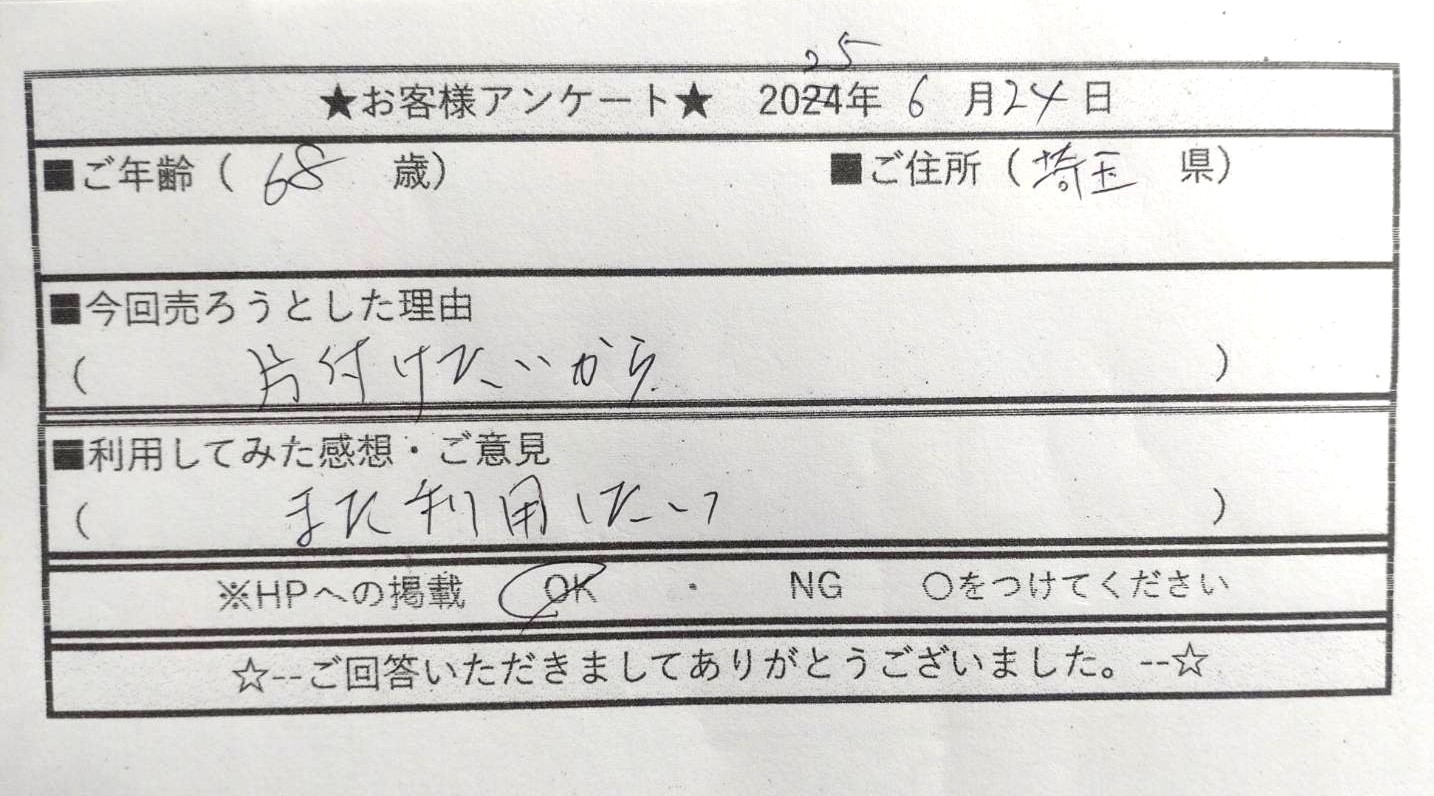 ★お客様アンケート★ 2025年 6月24日
■ご年齢（ 68 歳） ■ご住所（埼玉 県）
■今回売ろうとした理由
（ 片付けたいから ）
■利用してみた感想・ご意見
（ また利用したい ）
※HPへの掲載 OK ・ NG 〇をつけてください
☆--ご回答いただきましてありがとうございました。--☆